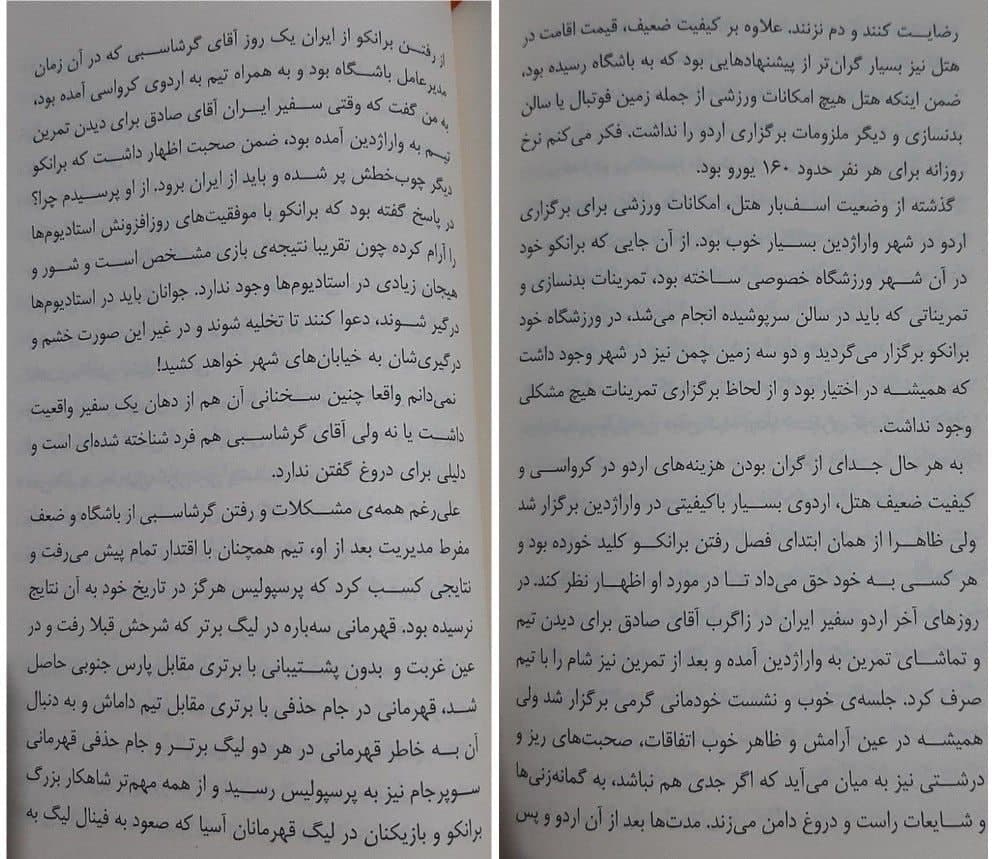 رضایت کنند و دم نزنند. علاوه بر کیفیت ضعیف، قیمت اقامت در
هتل نیز بسیار گران‌تر از پیشنهادهایی بود که به باشگاه رسیده بود،
ضمن اینکه هتل هیچ امکانات ورزشی از جمله زمین فوتبال یا سالن
بدنسازی و دیگر ملزومات برگزاری اردو را نداشت. فکر می‌کنم نرخ
روزانه برای هر نفر حدود ۱۶۰ یورو بود.
گذشته از وضعیت اسف‌بار هتل، امکانات ورزشی برای برگزاری
اردو در شهر واراژدین بسیار خوب بود. از آن جایی که برانکو خود
در آن شهر ورزشگاه خصوصی ساخته بود، تمرینات بدنسازی و
تمریناتی که باید در سالن سرپوشیده انجام می‌شد، در ورزشگاه خود
برانکو برگزار می‌گردید و دو سه زمین چمن نیز در شهر وجود داشت
که همیشه در اختیار بود و از لحاظ برگزاری تمرینات هیچ مشکلی
وجود نداشت.
به هر حال جدای از گران بودن هزینه‌های اردو در کرواسی و
کیفیت ضعیف هتل، اردوی بسیار باکیفیتی در واراژدین برگزار شد
ولی ظاهرا از همان ابتدای فصل رفتن برانکو کلید خورده بود و
هر کسی به خود حق می‌داد تا در مورد او اظهار نظر کند. در
روزهای آخر اردو سفیر ایران در زاگرب آقای صادق برای دیدن تیم
و تماشای تمرین به واراژدین آمده و بعد از تمرین نیز شام را با تیم
صرف کرد. جلسه‌ی خوب و نشست خودمانی گرمی برگزار شد ولی
همیشه در عین آرامش و ظاهر خوب اتفاقات، صحبت‌های ریز و
درشتی نیز به میان می‌آید که اگر جدی هم نباشد، به گمانه‌زنی‌ها
و شایعات راست و دروغ دامن می‌زند. مدت‌ها بعد از آن اردو و پس
از رفتن برانکو از ایران یک روز آقای گرشاسبی که در آن زمان
مدیرعامل باشگاه بود و به همراه تیم به اردوی کرواسی آمده بود،
به من گفت که وقتی سفیر ایران آقای صادق برای دیدن تمرین
تیم به واراژدین آمده بود، ضمن صحبت اظهار داشت که برانکو
دیگر چوب‌خطش پر شده و باید از ایران برود. از او پرسیدم چرا؟
در پاسخ گفته بود که برانکو با موفقیت‌های روزافزونش استادیوم‌ها
را آرام کرده چون تقریبا نتیجه‌ی بازی مشخص است و شور و
هیجان زیادی در استادیوم‌ها وجود ندارد. جوانان باید در استادیوم‌ها
درگیر شوند، دعوا کنند تا تخلیه شوند و در غیر این صورت خشم و
درگیری‌شان به خیابان‌های شهر خواهد کشید!
نمی‌دانم واقعا چنین سخنانی آن هم از دهان یک سفیر واقعیت
داشت یا نه ولی آقای گرشاسبی هم فرد شناخته شده‌ای است و
دلیلی برای دروغ گفتن ندارد.
علی‌رغم همه‌ی مشکلات و رفتن گرشاسبی از باشگاه و ضعف
مفرط مدیریت بعد از او، تیم همچنان با اقتدار تمام پیش می‌رفت و
نتایجی کسب کرد که پرسپولیس هرگز در تاریخ خود به آن نتایج
نرسیده بود. قهرمانی سه‌باره در لیگ برتر که شرحش قبلا رفت و در
عین غربت و بدون پشتیبانی با برتری مقابل پارس جنوبی حاصل
شد، قهرمانی در جام حذفی با برتری مقابل تیم داماش و به دنبال
آن به خاطر قهرمانی در هر دو لیگ برتر و جام حذفی قهرمانی
سوپرجام نیز به پرسپولیس رسید و از همه مهم‌تر شاهکار بزرگ
برانکو و بازیکنان در لیگ قهرمانان آسیا که صعود به فینال لیگ به